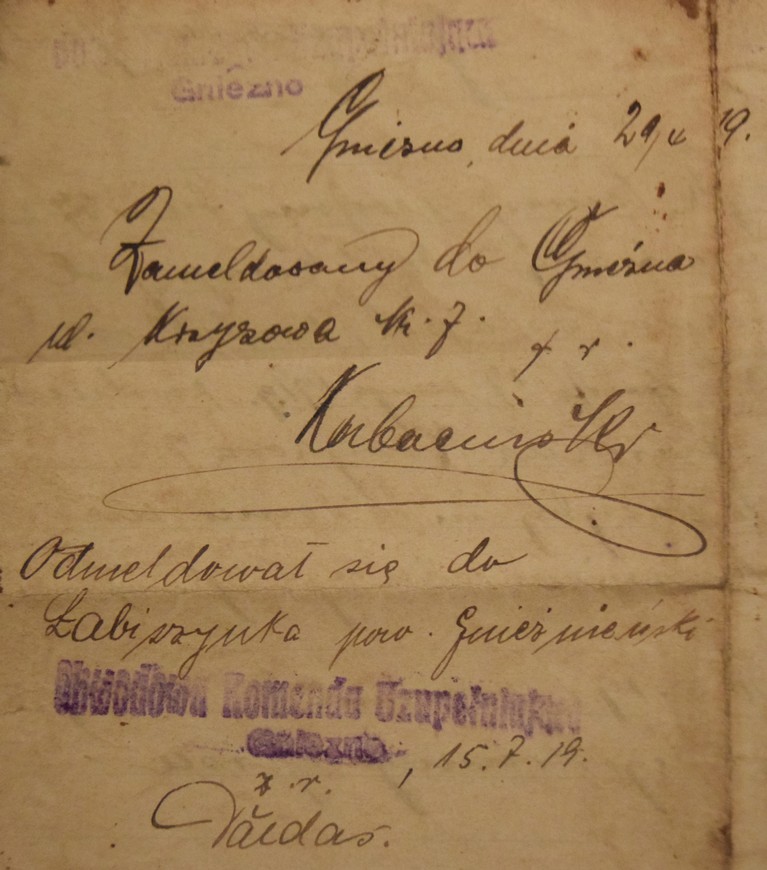 Gniezno
Gniezno, dnia 29/4 19.
Zameldowany do Gniezna
ul. Krzyżowa Nr. 7.
z r.
Odmeldował się do
Łabiszynka pow. Gnieźnieński
Obwodowa Komenda Uzupełniająca
Gniezno
, 15.7.19.
z. r.